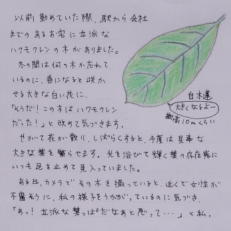 以前勤めていた際、駅から会社
までのあるお宅に立派な
ハクモクレンの木がありました。
冬の間は何の木か忘れて
いるのに、春になると咲か
せる大きな白い花に、
「そうだ!この木はハクモクレン
だった!」と改めて気づきます。
せがて花が散り、しばらくすると、今度は見事な
大きな葉を繁らせます。光を浴びて輝く葉の存在感に
いつも足を止めて見入っていました。
ある日、カメラでその木を撮っていると、近くで女性が
不審そうに、私の様子をうかがっているのに気づき、
「あっ!立派な葉っぱだなぁと思って・・・」と私。
白木蓮
大きくなるよー
樹高10mくらい